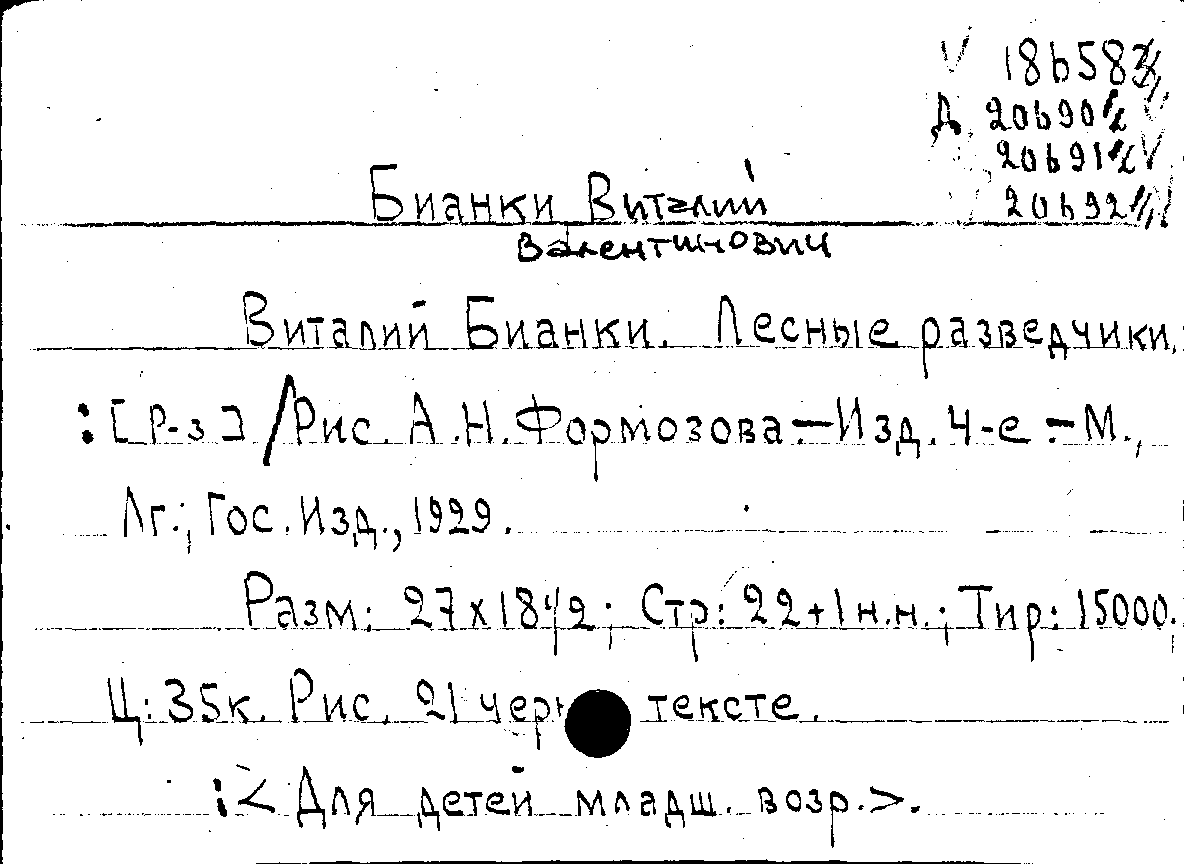 186583
Д 20690
20691
20692
Бианки Виталий
Валентинович
Виталий Бианки. Лесные разведчики.
: [Р-з] / Рис. А.Н. Формозова. — Изд. 4-е. — М.,
Лг.; Гос. Изд., 1929.
Разм: 27х18 1/2; Стр: 22+1 н.н.; Тир: 15000.
Ц: 35к. Рис. 21 тексте.
: < Для детей младш. возр. >.